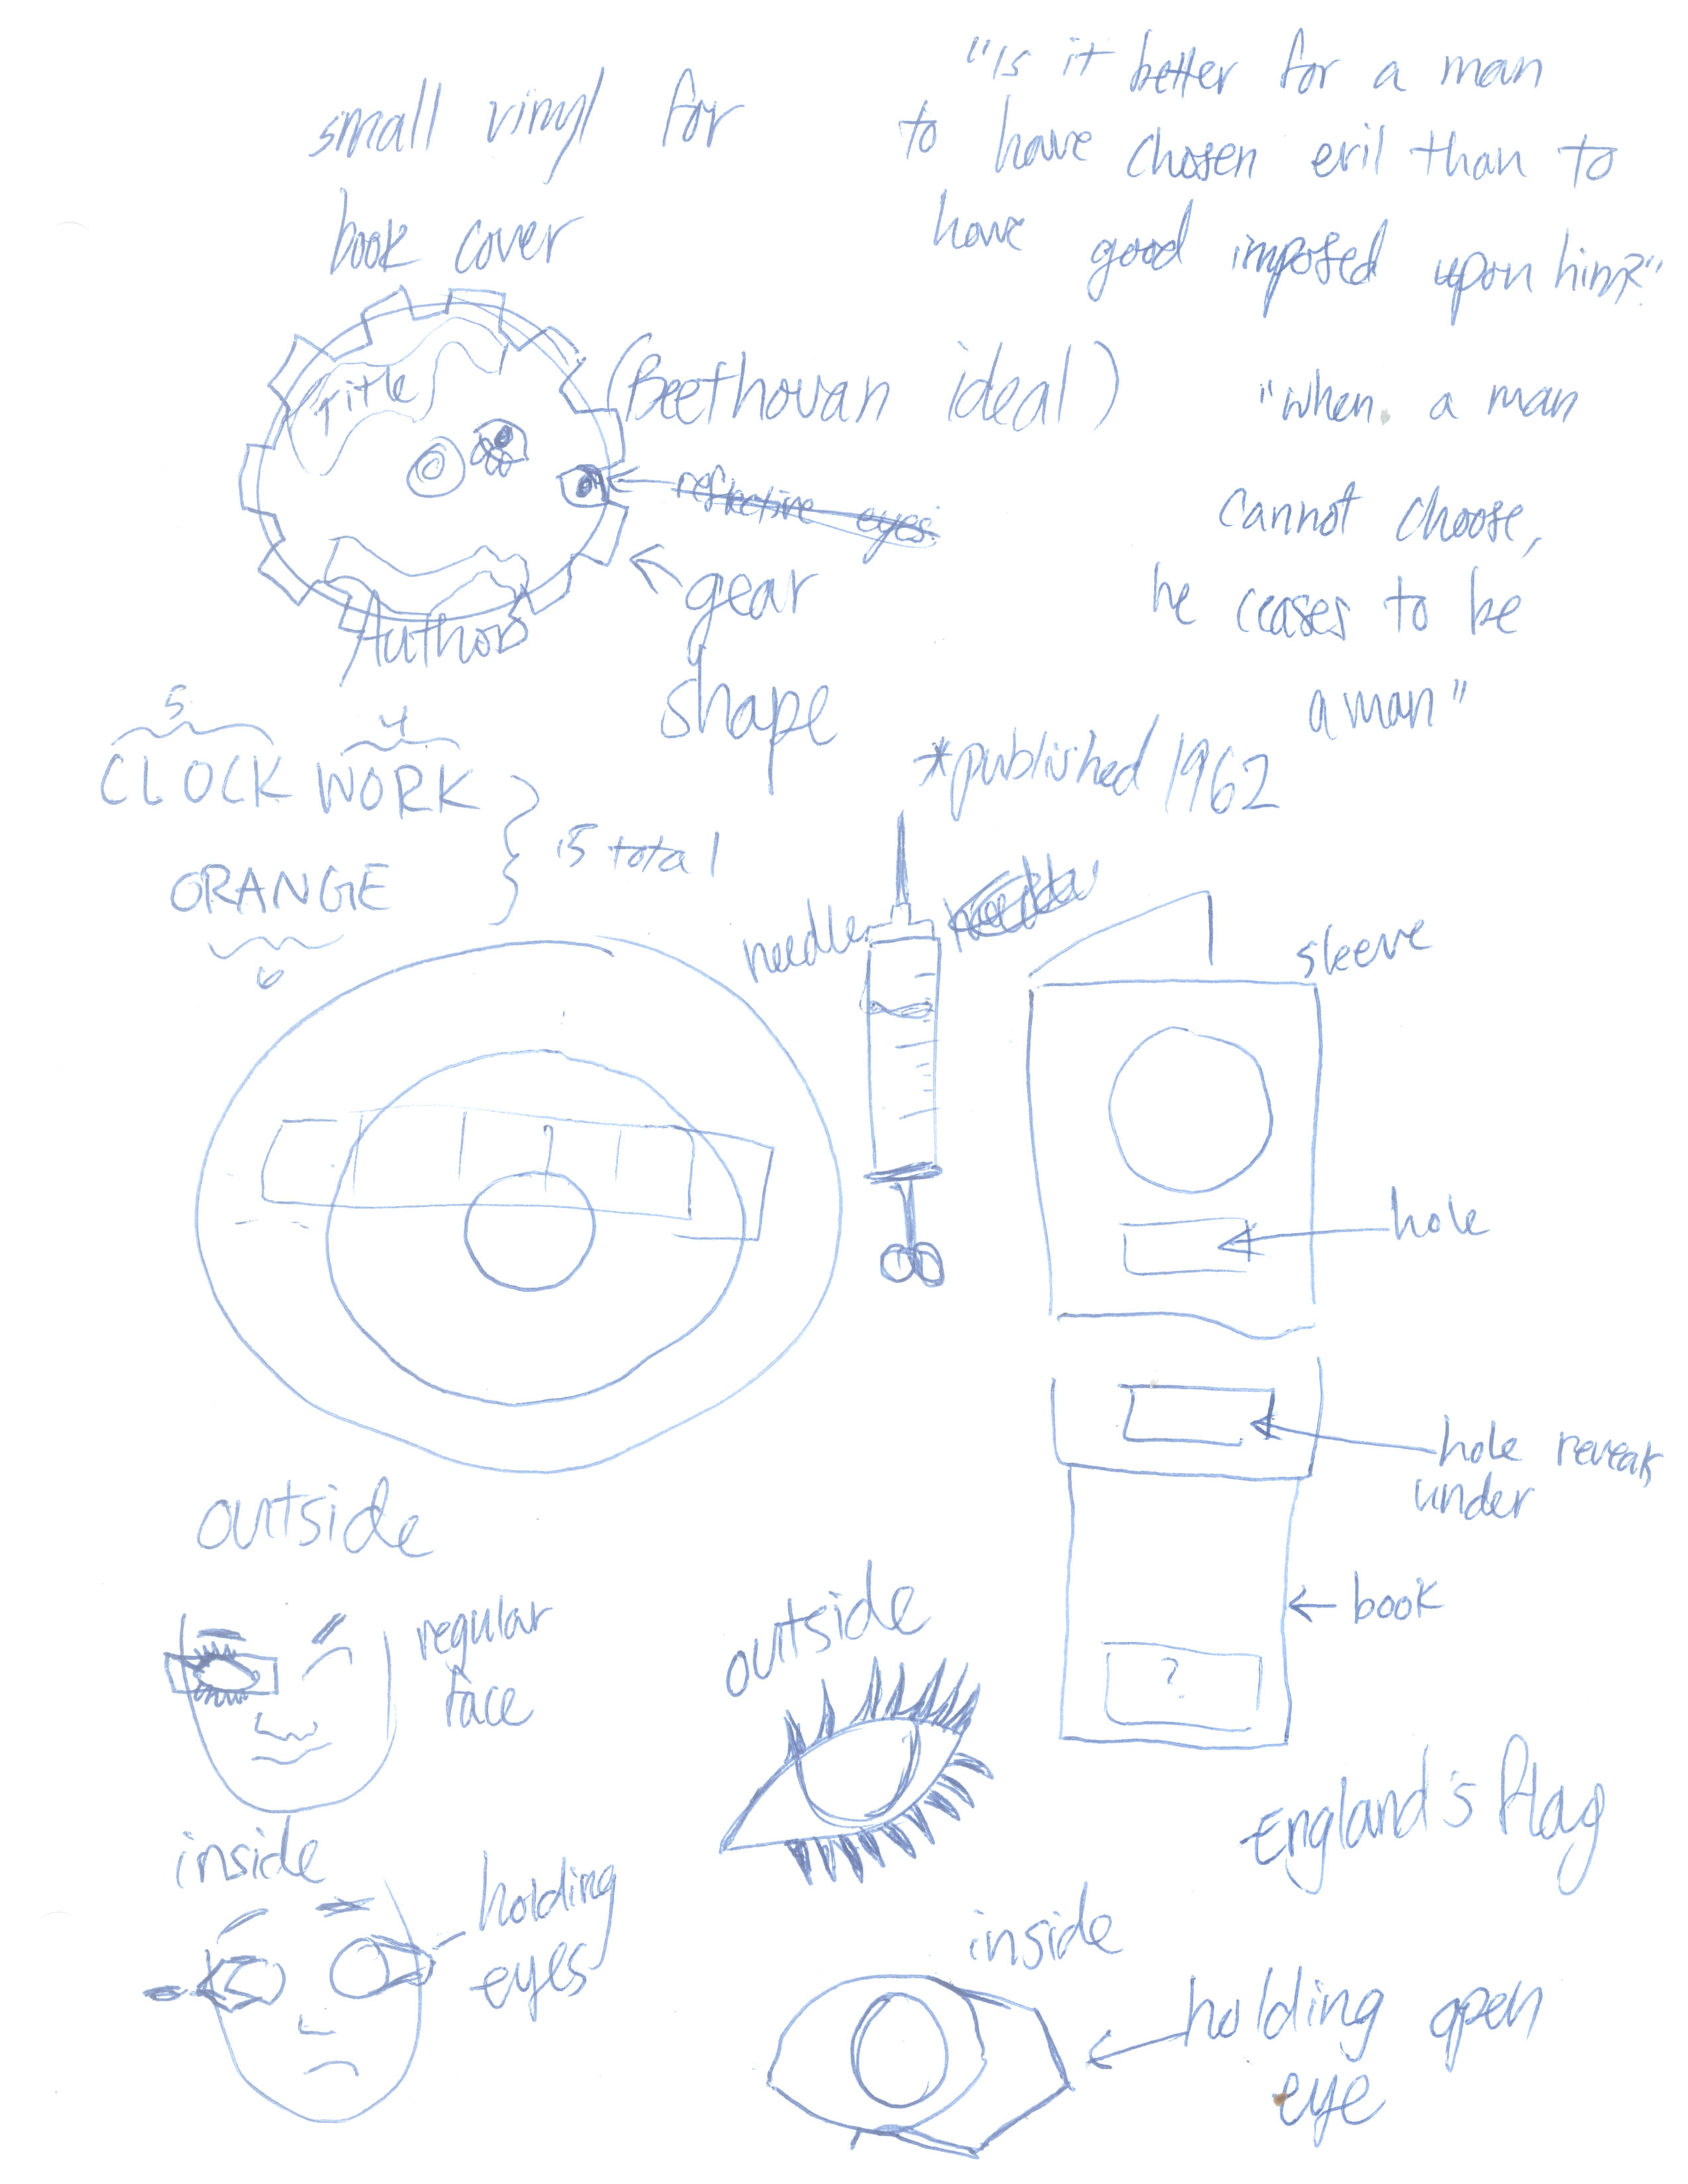 small vinyl for
book cover
"Is it better for a man
to have chosen evil than to
have good imposed upon him?"
Title
(Beethovan ideal)
reflective eyes
gear
shape
Author
"when a man
cannot choose,
he ceases to be
a man"
*published 1962
5
4
CLOCK WORK
ORANGE
6
15 total
needle
sleeve
hole
hole reveals
under
book
?
outside
regular
face
inside
holding
eyes
outside
inside
holding open
eye
England's flag